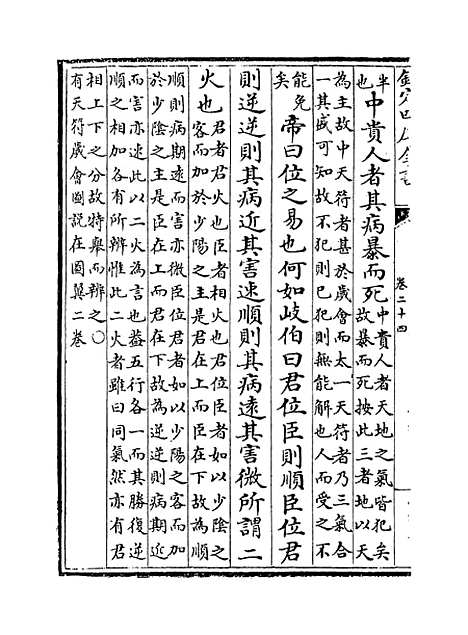 欽定四庫全書
卷二十四
半
也
中貴人者其病暴而死
中貴人者天地之氣皆犯矣
故暴而死按此三者地以天
為主故中天符者甚於歲會而太一天符者乃三氣合
一其盛可知故不犯則已犯則無能解也人而受之不
能免
矣
帝曰位之易也何如岐伯曰君位臣則順臣位君
則逆逆則其病近其害速順則其病遠其害微所謂二
火也
君者君火也臣者相火也君位臣者如以少陰之
客而加於少陽之主是君在上而臣在下故為順
順則病期遠而害亦微臣位君者如以少陽之客而加
於少陰之主是臣在上而君在下故為逆逆則病期近
而害亦速此以二火為言也葢五行各一而其勝復逆
順之相加各有所辨惟此二火者雖曰同氣然亦有君
相上下之分故特舉而辨之○
有天符歲會圖説在圖翼二卷